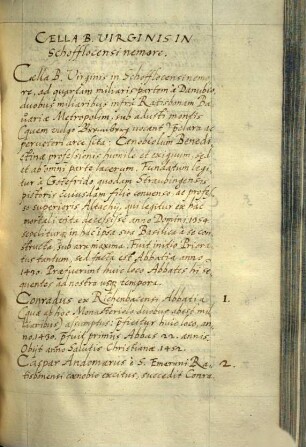 CELLA B. VIRGINIS IN
Schofflocensi nemore.
Cella B. Virginis in Schofflocensi nemo-
re, ad quartam miliaris partem à Danubio,
duobus miliaribus infra Ratisbonam Ba-
uariæ Metropolim, sub adusti montis
(quem vulgo nocant) præclara ac
peruetteri arce sita: Cænobiolum Benedi-
ctinæ professionis humile et exiguum, sed
et ab omni parte lacerum. Fundatum legi-
tur à Gotefrido, quodam Straubingensis
pistoris cuiusdam filio conuerso ac profes-
so superioris Altachij, qui legitur ex hac
mortali vita decessisse anno Domini,
in hac ipsa sua Basilica à se con-
structa, maxima. Fuit initio Priora-
tus tantum, sed facta est Abbatia anno
1490. Præfuerunt huic loco Abbates hi se-
quentes ad nostra usque tempora.
Conradus ex Richenbacensi Abbatia 1.
quæ ab hoc Monasterio duobus abest mi-
liaribus assumptus: præficitur huic loco, an-
no. 1430. præfuit primus Abbas 22. annos.
Obijt anno Salutis Christianæ 1452.
Caspar Andomarus è S. Emerami Ra- 2.
tisbonensi cœnobio excitus, succedit Conra